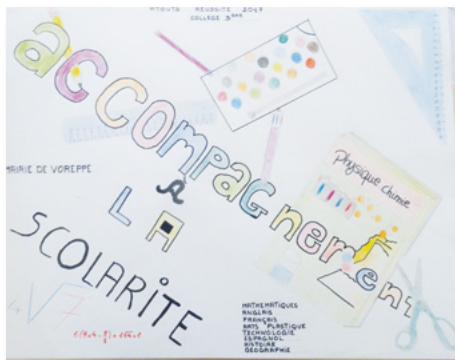 ATOUTS REUSSITE 2017
COLLEGE 3ème
accompagnement
à
LA
SCOLARITE
MAIRIE DE VOREPPE
Physique Chimie
MATHEMATIQUES
ANGLAIS
FRANÇAIS
ARTS PLASTIQUE
TECHNOLOGIE
ESPAGNOL
HISTOIRE
GEOGRAPHIE